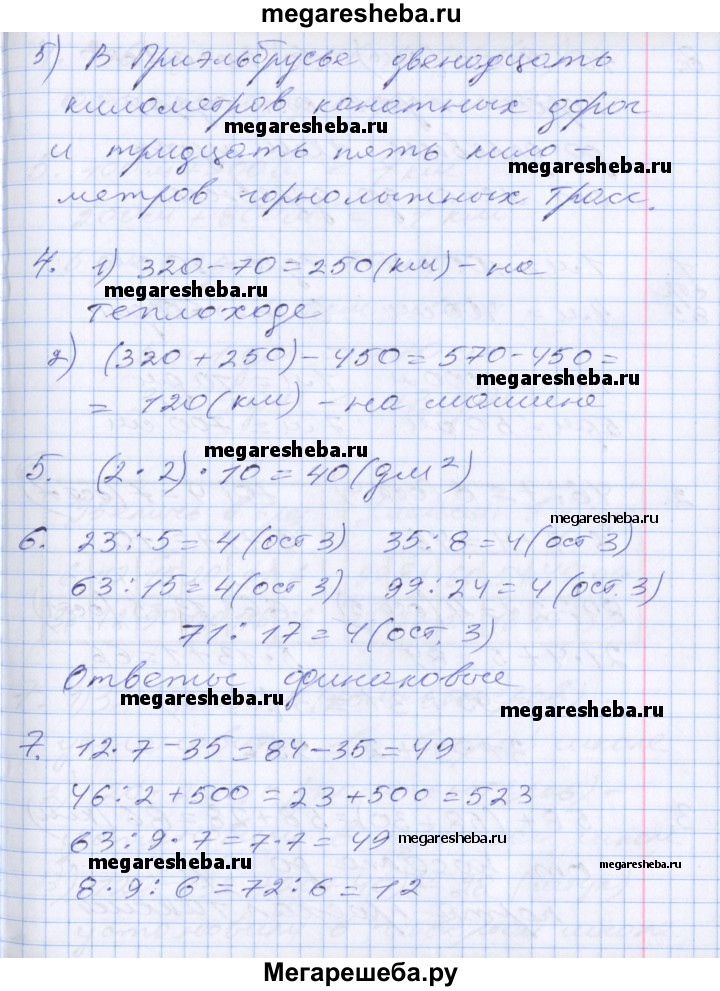 megaresheba.ru
5) В Приэльбрусье двенадцать
километров канатных дорог
megaresheba.ru
и тридцать пять кило-
megaresheba.ru
метров горнолыжных трасс.
4. 1) 320-70=250(км)-на
megaresheba.ru
теплоходе
2) (320+250)-450=570-450=
megaresheba.ru
= 120(км)-на машине
megaresheba.ru
5. (2·2)·10=40(дм²)
megaresheba.ru
6. 23:5=4(ост 3) 35:8=4(ост 3)
megaresheba.ru
63:15=4(ост 3) 99:24=4(ост. 3)
71:17=4(ост. 3)
Ответы одинаковые
megaresheba.ru
megaresheba.ru
7. 12·7-35=84-35=49
46:2+500=23+500=523
63:9·7=7·7=49
megaresheba.ru
megaresheba.ru
megaresheba.ru
8·9:6=72:6=12
Мегарешеба.ру